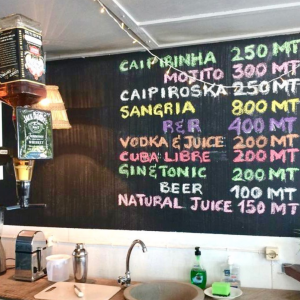 CAIPIRINHA 250 MT
MOJITO 300 MT
CAIPIROSKA 250 MT
SANGRIA 800 MT
R&R 400 MT
VODKA & JUICE 200 MT
CUBA LIBRE 200 MT
GIN & TONIC 200 MT
BEER 100 MT
NATURAL JUICE 150 MT
JACK DANIEL'S